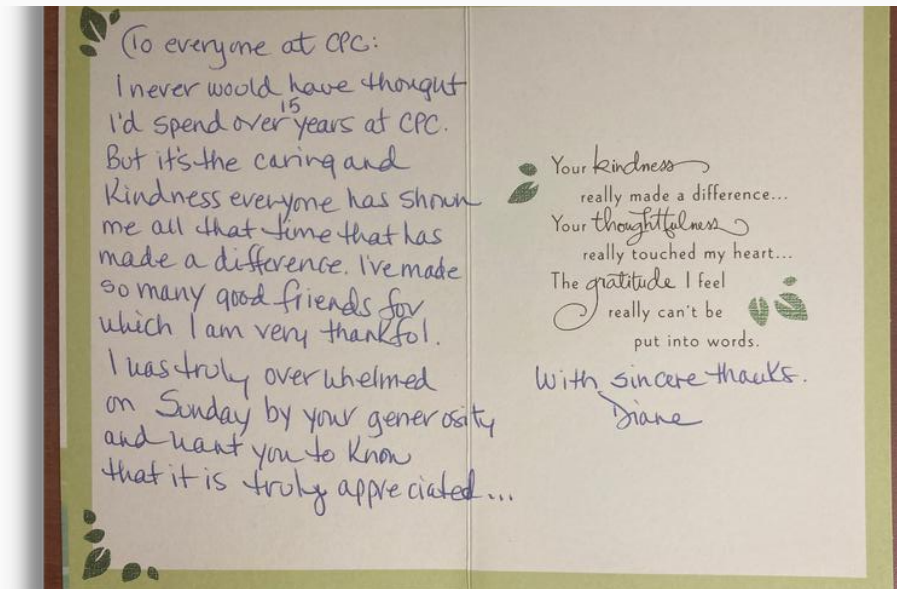 To everyone at CPC:
I never would have thought
I'd spend over 15 years at CPC.
But it's the caring and
Kindness everyone has shown
me all that time that has
made a difference. I've made
so many good friends for
which I am very thankful.
I was truly overwhelmed
on Sunday by your generosity
and want you to know
that it is truly appreciated...
Your kindness
really made a difference...
Your thoughtfulness
really touched my heart...
The gratitude I feel
really can't be
put into words.
With sincere thanks.
Diane